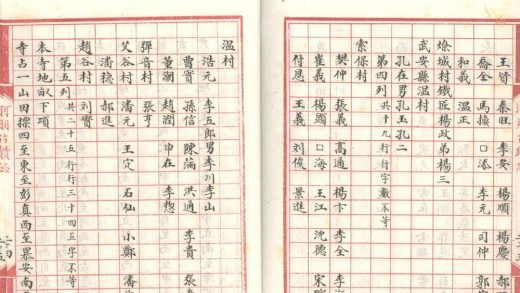 王簹 秦旺 李安 楊順 楊慶 郝
喬金 馬揆 口添 李元 司仲 郭
和義 溫正
燎城村鐵匠楊政弟楊三
武安縣溫村
孔在男孔玉孔二
第四列 共十九行行字數不等
索保村
樊仲 張義 高通 楊卞 李全 李
崔義 楊顕 口海 王江 沈德 宋
付恩 王義 刘俊 景進
溫村
浩元 李五郎男李川李山
曹賓 孫信 陳滿 洪通 李貴 張
董澍 趙潤 申在 李惣
彈音村 張亨
艾谷村 潘元 王定 石仙 小鄭 潘
潘穩 郝進
趙谷村 刘實
第五列 共二十五行行三十四五字不等
本寺地畝下項
寺占一山田摞四至東至彭真西至暴安南